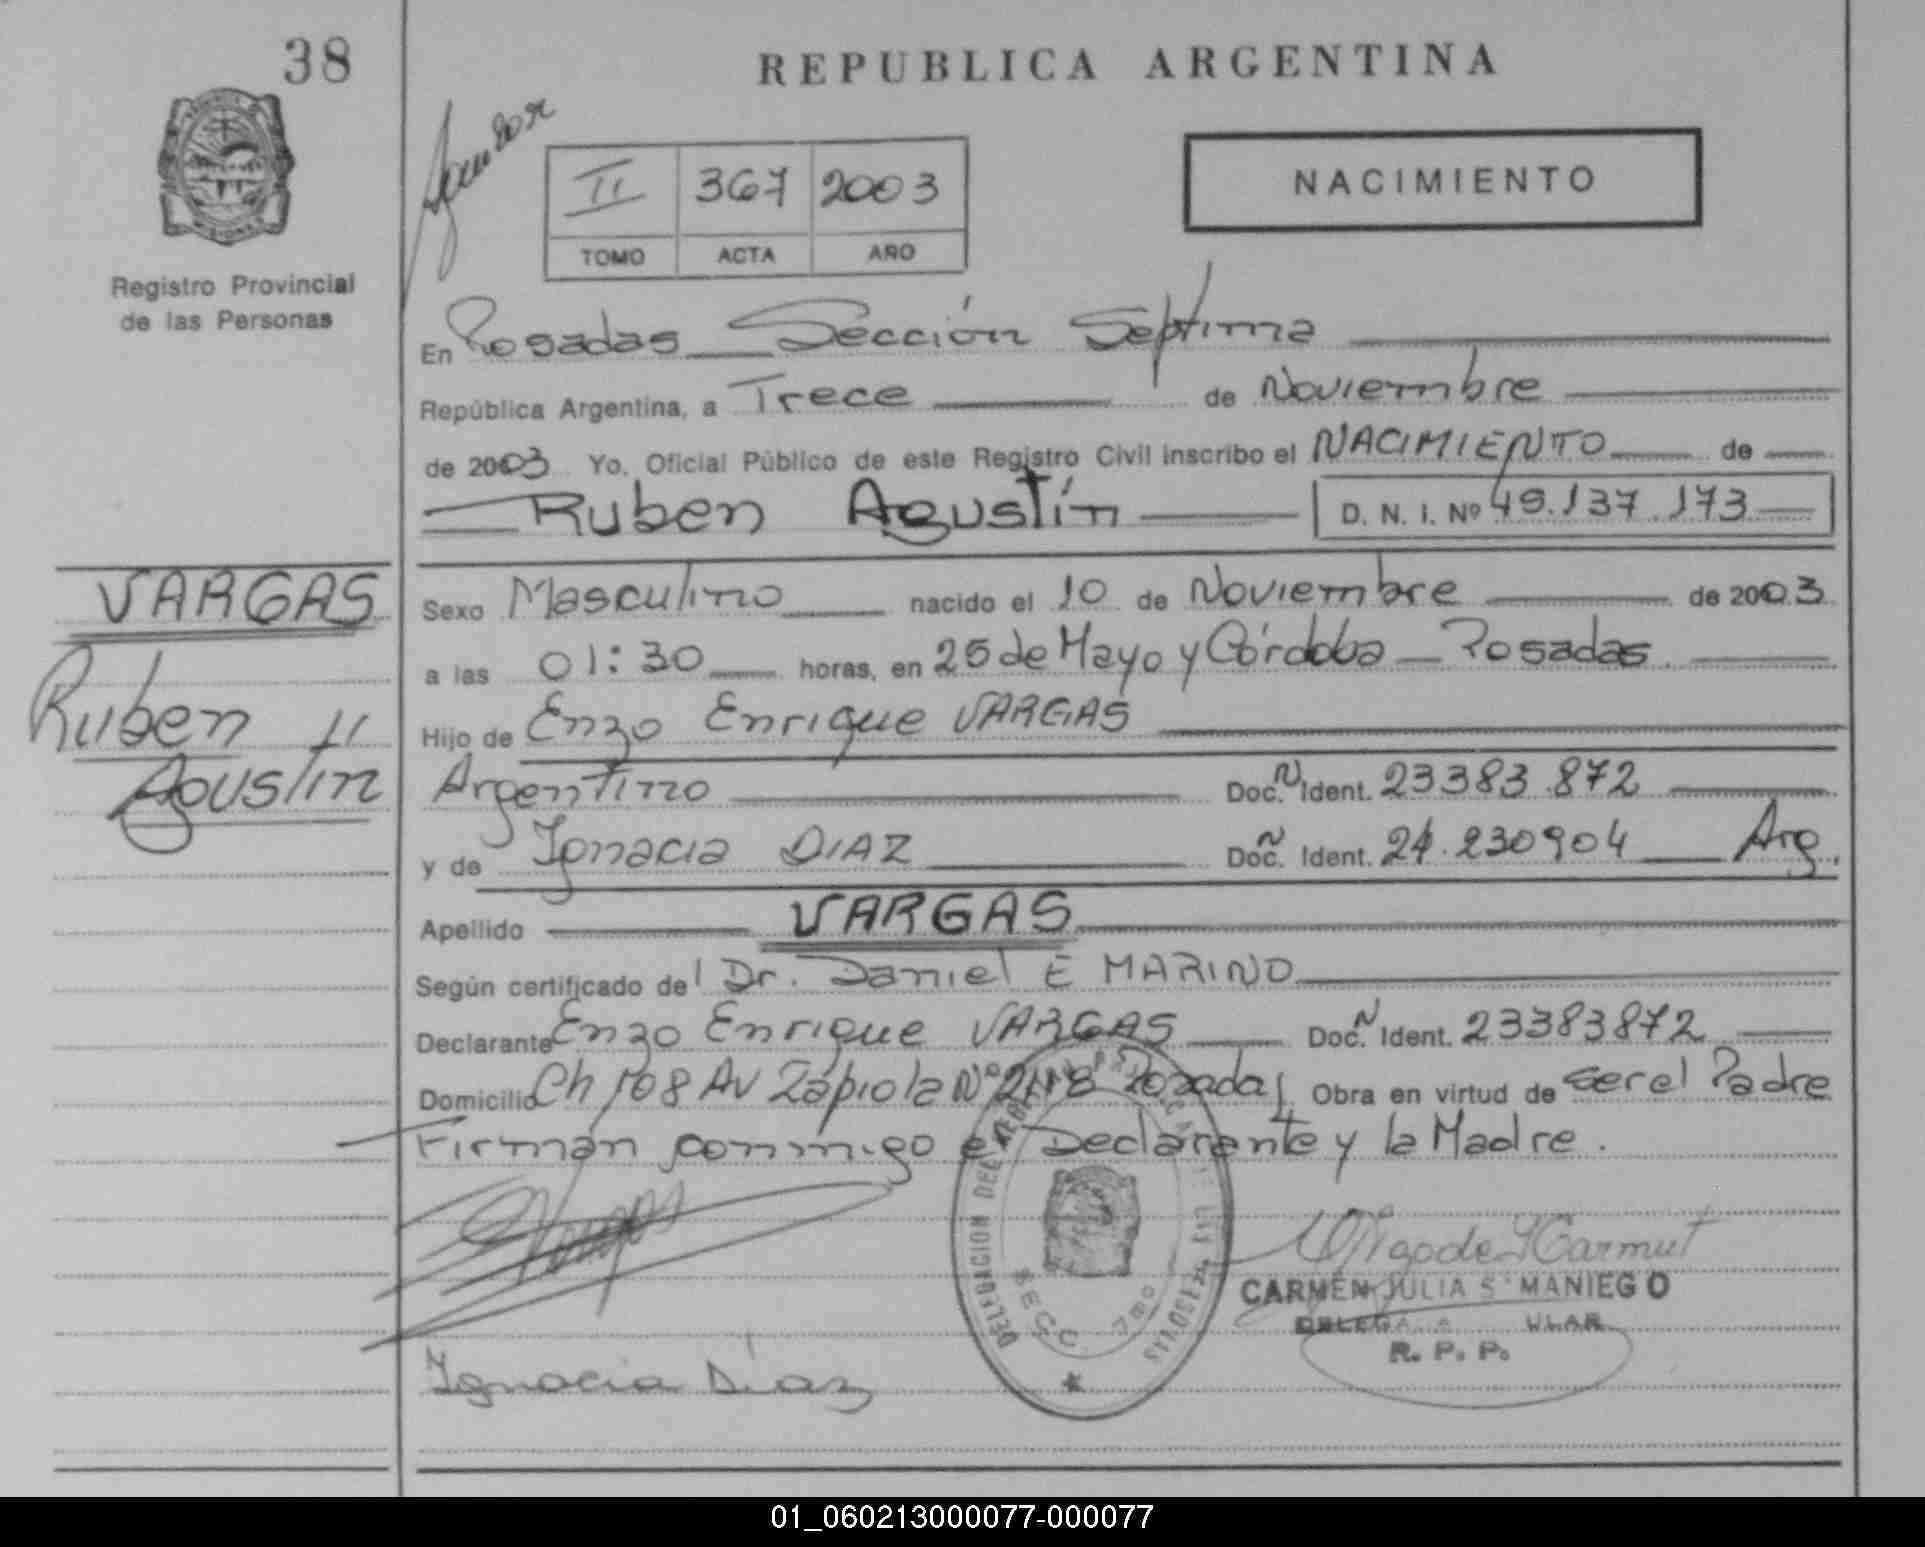 38
REPUBLICA ARGENTINA
II 367 2003
TOMO ACTA AÑO
NACIMIENTO
Registro Provincial
de las Personas
En Posadas Sección Septima
República Argentina, a Trece de Noviembre
de 2003 Yo, Oficial Público de este Registro Civil inscribo el NACIMIENTO de
Ruben Agustín D. N. I. Nº 49.137.173
VARGAS
Ruben
Agustín
Sexo Masculino nacido el 10 de Noviembre de 2003
a las 01:30 horas, en 25 de Mayo y Córdoba Posadas.
Hijo de Enzo Enrique VARGAS
Argentino Doc. N Ident. 23383.872
y de Ignacia DIAZ Doc. N Ident. 24.230904 Arg.
Apellido VARGAS
Según certificado del Dr. Daniel E MARINO
Declarante Enzo Enrique VARGAS Doc. N Ident. 23383872
Domicilio Ch 108 AV Zapiola Nº Posadas Obra en virtud de ser el Padre
Firman conmigo el Declarante y la Madre.
Vargas
DELEGACION DEL
SECC. 7ma
CARMEN JULIA S MANIEGO
R. P. P.
Ignacia Díaz
01_060213000077-000077